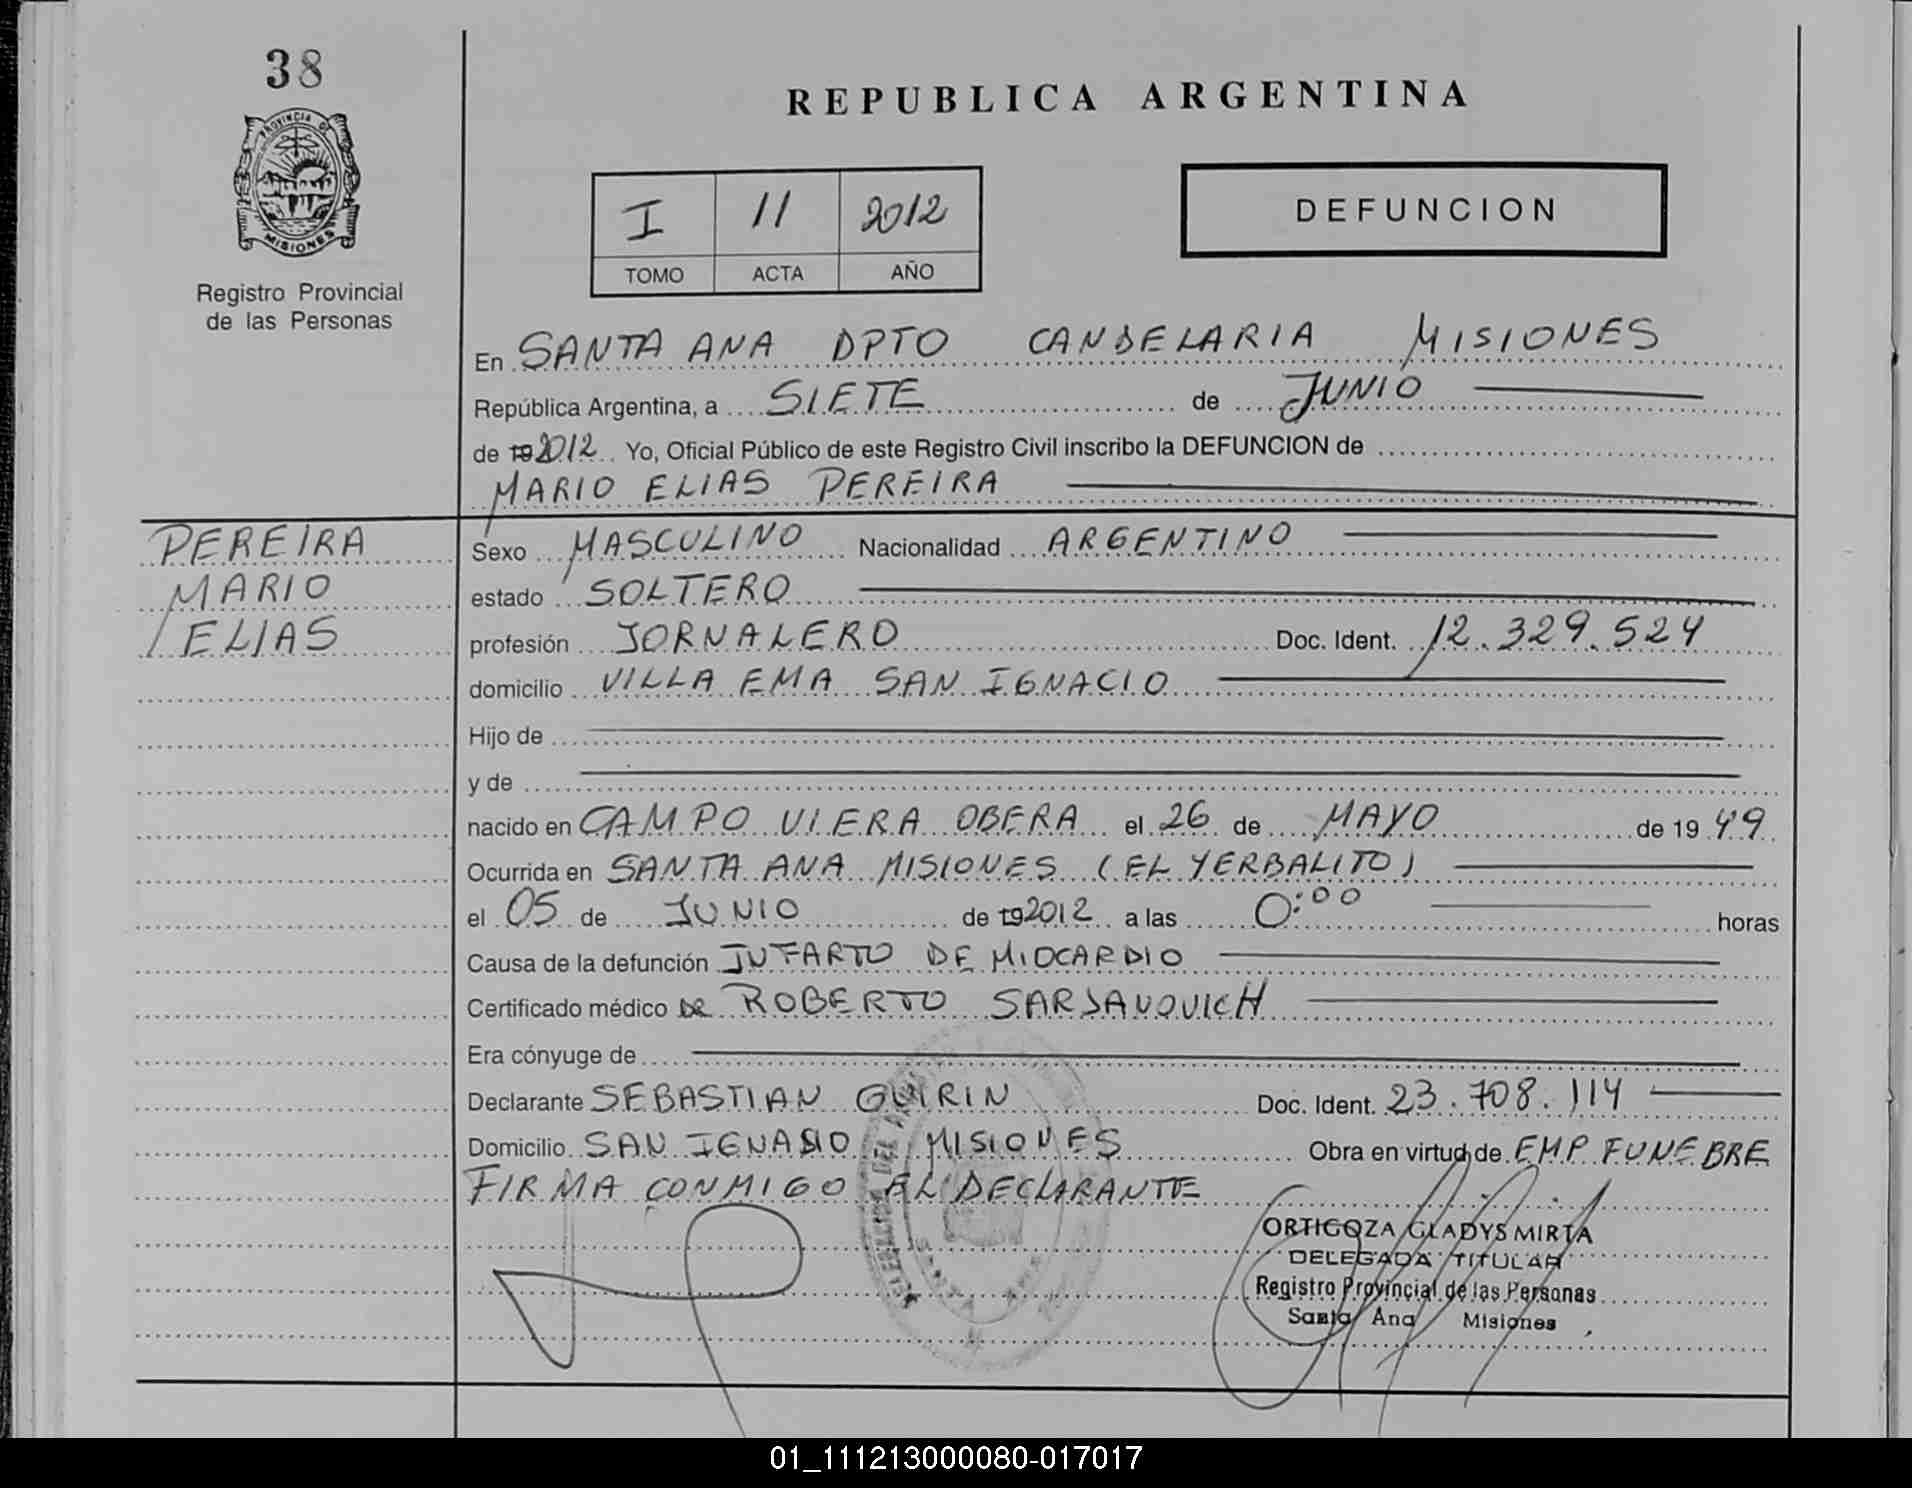 38
PROVINCIA DE
MISIONES
Registro Provincial
de las Personas
REPUBLICA ARGENTINA
I 11 2012
TOMO ACTA AÑO
DEFUNCION
En SANTA ANA DPTO CANDELARIA MISIONES
República Argentina, a SIETE de JUNIO
de 19 2012 Yo, Oficial Público de este Registro Civil inscribo la DEFUNCION de
MARIO ELIAS PEREIRA
PEREIRA
MARIO
ELIAS
Sexo MASCULINO Nacionalidad ARGENTINO
estado SOLTERO
profesión JORNALERO Doc. Ident. 12.329.524
domicilio VILLA EMA SAN IGNACIO
Hijo de
y de
nacido en CAMPO VIERA OBERA el 26 de MAYO de 19 49
Ocurrida en SANTA ANA MISIONES (EL YERBALITO)
el 05 de JUNIO de 19 2012 a las 0:00 horas
Causa de la defunción INFARTO DE MIOCARDIO
Certificado médico DR ROBERTO SARJANOVICH
Era cónyuge de
Declarante SEBASTIAN GUIRIN Doc. Ident. 23.708.114
Domicilio SAN IGNASIO MISIONES Obra en virtud de EMP FUNEBRE
FIRMA CONMIGO EL DECLARANTE
ORTIGOZA GLADYS MIRTA
DELEGADA TITULAR
Registro Provincial de las Personas
Santa Ana Misiones
01_111213000080-017017